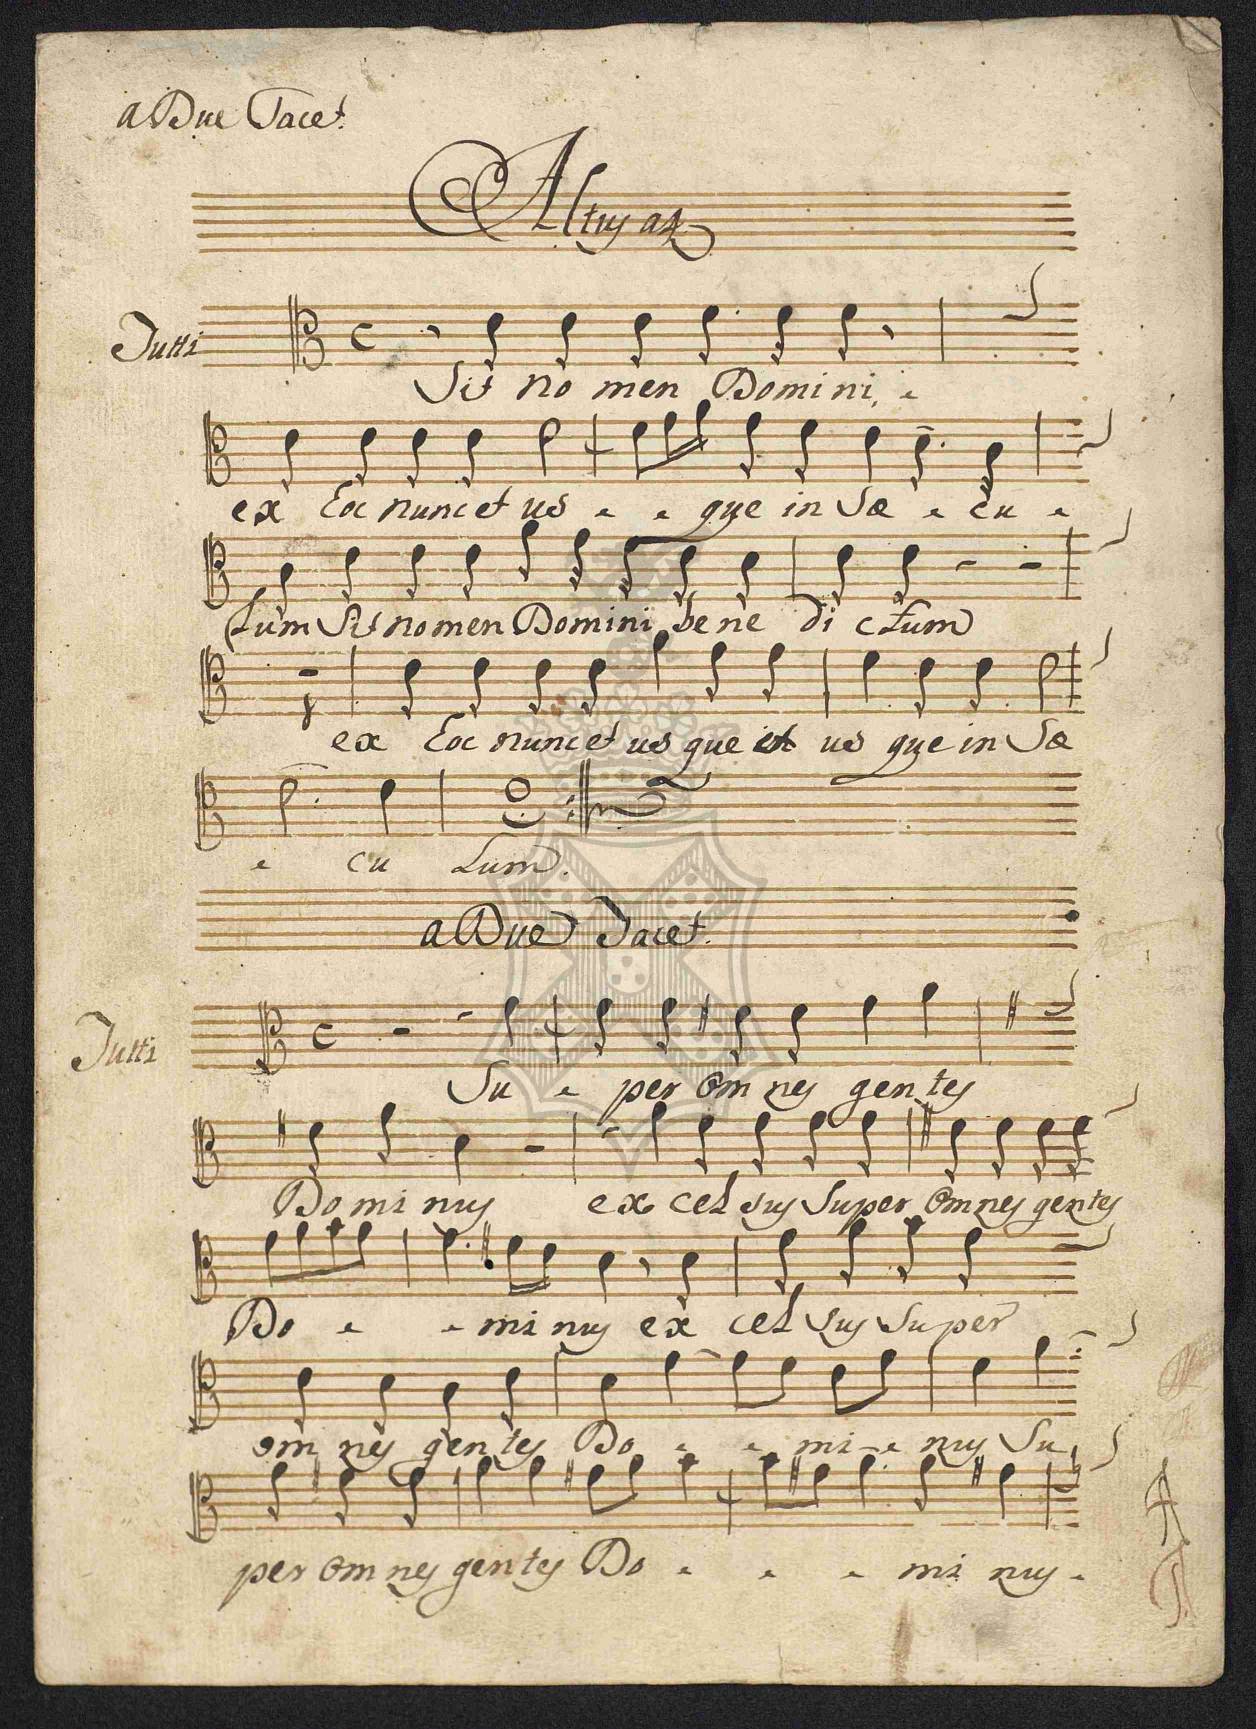 a Due Tacet.
Altus a4
Tutti
Sit no men Domini, -
ex hoc nunc et us - - que in Sæ - cu -
lum Sit nomen Domini be ne di ctum
ex hoc nunc et us que et us que in Sæ
- cu lum.
a Due Tacet.
Tutti
Su - per om nes gentes
Do mi nus ex cel sus Super Omnes gentes
Do - - mi nus ex cel sus Super
om nes gentes Do - - mi - nus Su
per Om nes gentes Do - - - mi nus -